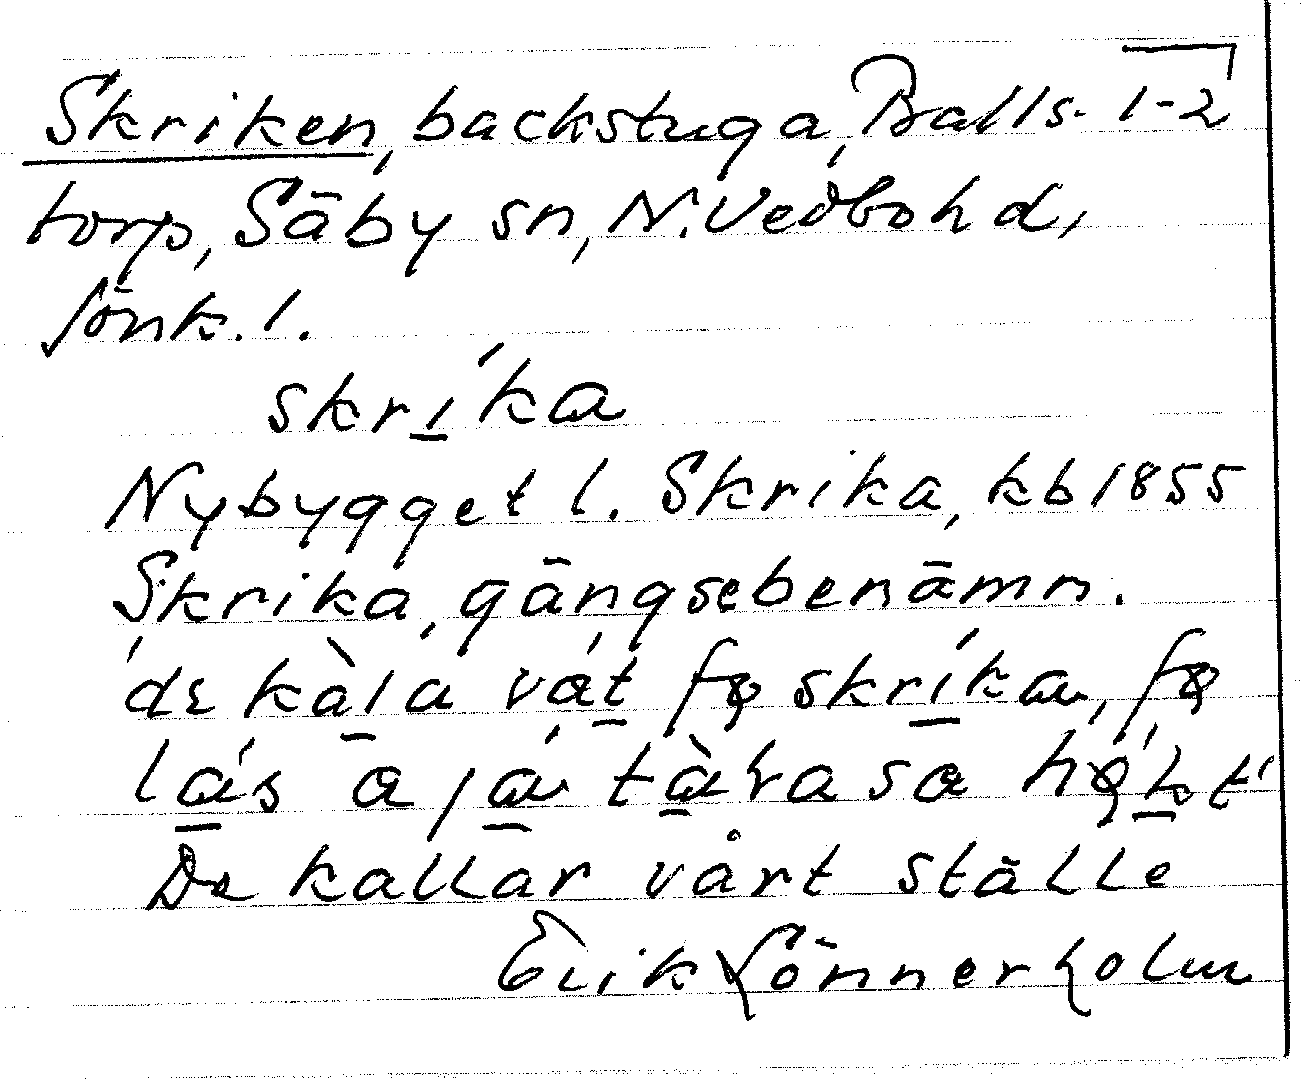 Skriken, backstuga, Ralls- 1-2
torp, Säby sn, N. Vedbo hd,
Jönk. l.
skri̱´ka
Nybygget l. Skrika, kb 1855
Skrika, gängsebenämn.
dε kà̱la vaṯ fø skrí̱ka, fø
De kallar vårt ställe
Erik Lönnerholm